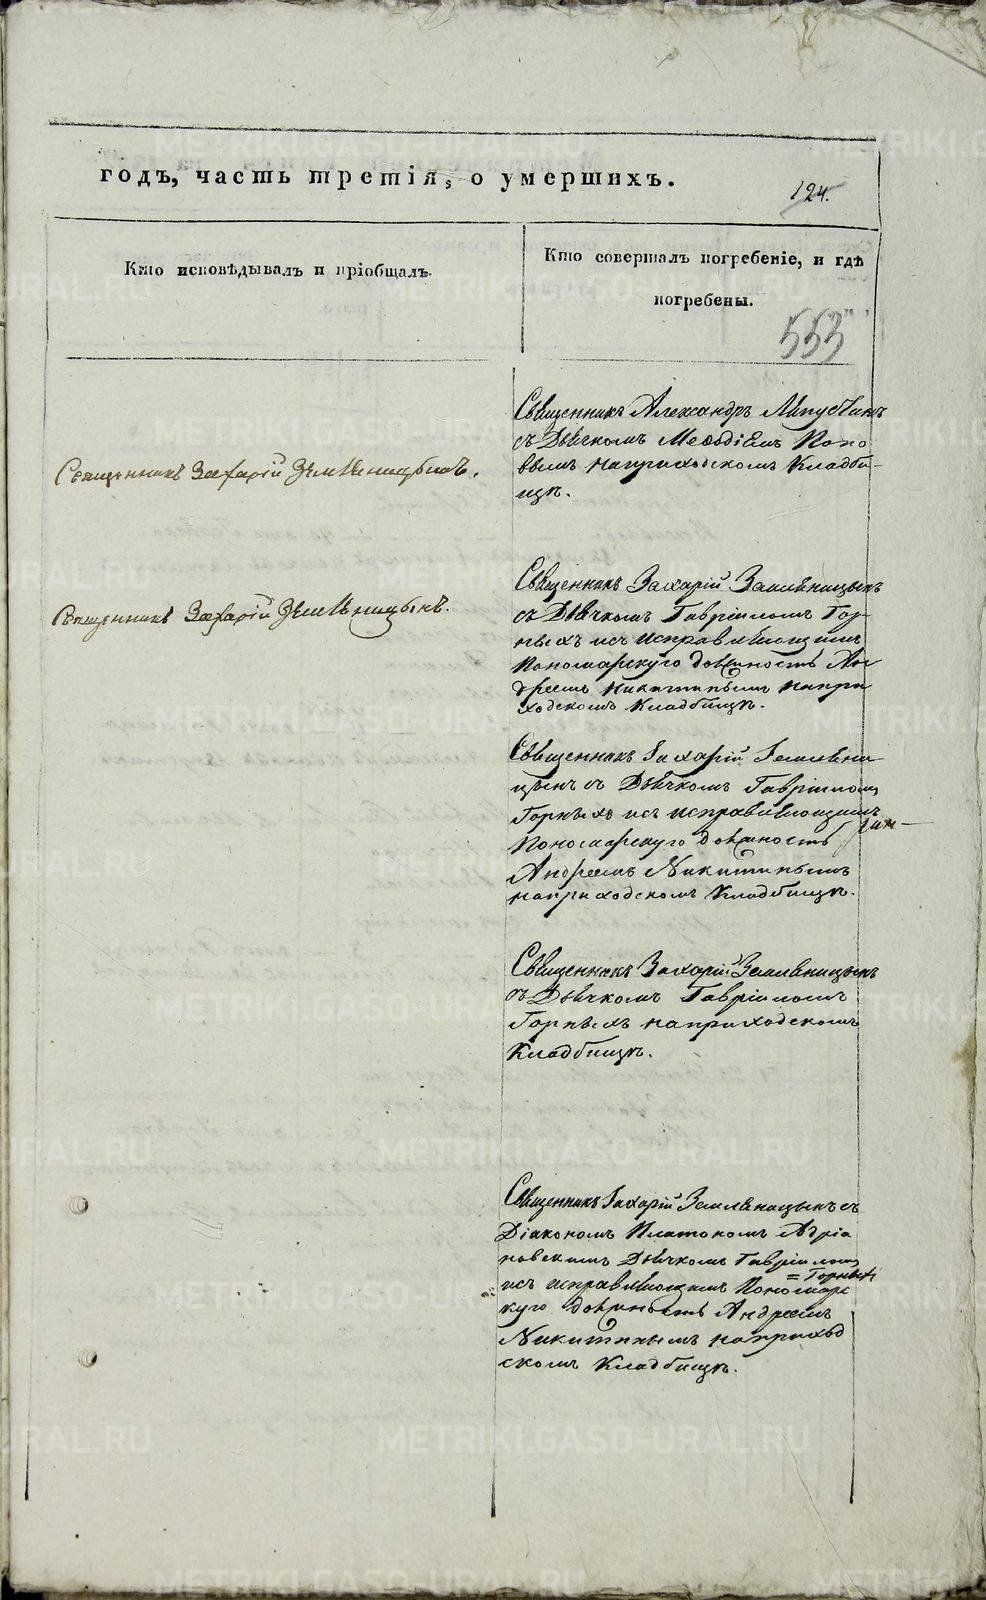 годъ, часть третія, о умершихъ.
124.
Кто исповѣдывалъ и пріобщалъ.
Кто совершалъ погребеніе, и гдѣ
погребены.
553
Священникъ Александръ
съ Дьячкомъ Меѳодіемъ Попо
вымъ наприходскомъ Кладби-
щѣ.
Священникъ Захарій Землѣницынъ.
Священникъ Захарій Землѣницынъ
съ Дьячкомъ Гавріиломъ Гор-
ныхъ исъ исправляющимъ
Пономарскую должность Ан
дреемъ Никитинымъ напри
ходскомъ Кладбищѣ.
Священникъ Захарій Землѣницынъ.
Священникъ Захарій Землѣни
цынъ съ Дьячкомъ Гавріиломъ
Горныхъ исъ исправляющимъ
Пономарскую должность
Андреемъ Никитинымъ
наприходскомъ Кладбищѣ.
Священникъ Захарій Землѣницынъ
съ Дьячкомъ Гавріиломъ
Горныхъ наприходскомъ
Кладбищѣ.
Священникъ Захарій Землѣницынъ съ
Діакономъ Платономъ Адріа
новскимъ Дьячкомъ Гавріиломъ
= Горныхъ
исъ исправляющимъ Пономарс
кую должность Андреемъ
Никитинымъ наприход
скомъ Кладбищѣ.
METRIKI.GASO-URAL.RU